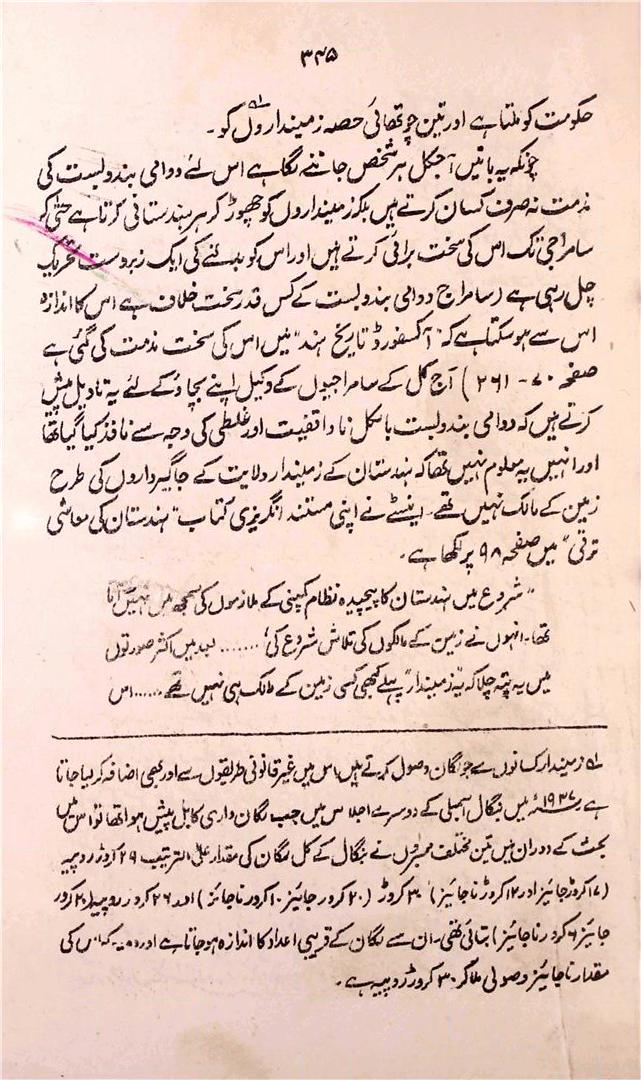 ۳۴۵
حکومت کو ملتا ہے اور تین چوتھائی حصہ زمینداروں کو۔
چونکہ یہ باتیں آجکل ہر شخص جاننے لگا ہے اس لئے دوامی بندوبست کی
مذمت نہ صرف کسان کرتے ہیں بلکہ زمینداروں کو چھوڑ کر ہر ہندستانی کرتا ہے حتیٰ کہ
سامراجی تک اس کی سخت برائی کرتے ہیں اور اس کو بدلنے کی ایک زبردست تحریک
چل رہی ہے (سامراج دوامی بندوبست کے کس قدر سخت خلاف ہے اس کا اندازہ
اس سے ہو سکتا ہے کہ "آکسفورڈ تاریخ ہند" میں اس کی سخت مذمت کی گئی ہے
صفحہ ۷۰ - ۲۶۱) آج کل کے سامراجیوں کے وکیل اپنے بچاؤ کے لئے یہ تاویل پیش
کرتے ہیں کہ دوامی بندوبست بالکل ناواقفیت اور غلطی کی وجہ سے نافذ کیا گیا تھا
اور انہیں یہ معلوم نہیں تھا کہ ہندستان کے زمیندار ولایت کے جاگیرداروں کی طرح
زمین کے مالک نہیں تھے۔ اینسٹے نے اپنی مستند انگریزی کتاب "ہندستان کی معاشی
ترقی" میں صفحہ ۹۸ پر لکھا ہے۔
"شروع میں ہندستان کا پیچیدہ نظام کمپنی کے ملازموں کی سمجھ میں نہیں آتا
تھا۔ انہوں نے زمین کے مالکوں کی تلاش شروع کی، ....... بعد میں اکثر صورتوں
میں یہ پتہ چلا کہ یہ "زمیندار" پہلے کبھی کسی زمین کے مالک ہی نہیں تھے ...... اس
لہ زمیندار کسانوں سے جو لگان وصول کرتے ہیں، اس میں غیر قانونی طریقوں سے اور بھی اضافہ کر لیا جاتا
ہے ۱۹۳۷ء میں بنگال اسمبلی کے دوسرے اجلاس میں جب لگان داری کا بل پیش ہوا تھا تو اس میں
بحث کے دوران میں تین مختلف ممبروں نے بنگال کے کل لگان کی مقدار علی الترتیب ۲۹ کروڑ روپیہ
(۱۷ کروڑ جائیز اور ۱۲ کروڑ ناجائیز) ۳۰ کروڑ (۲۰ کروڑ جائیز ۱۰ کروڑ ناجائیز) اور ۲۶ کروڑ روپیہ (۲۰ کروڑ
جائیز ۶ کروڑ ناجائیز) بتائی تھی۔ ان سے لگان کے قریبی اعداد کا اندازہ ہو جاتا ہے اور کی
مقدار ناجائیز وصولی ملا کر ۳۰ کروڑ روپیہ ہے۔